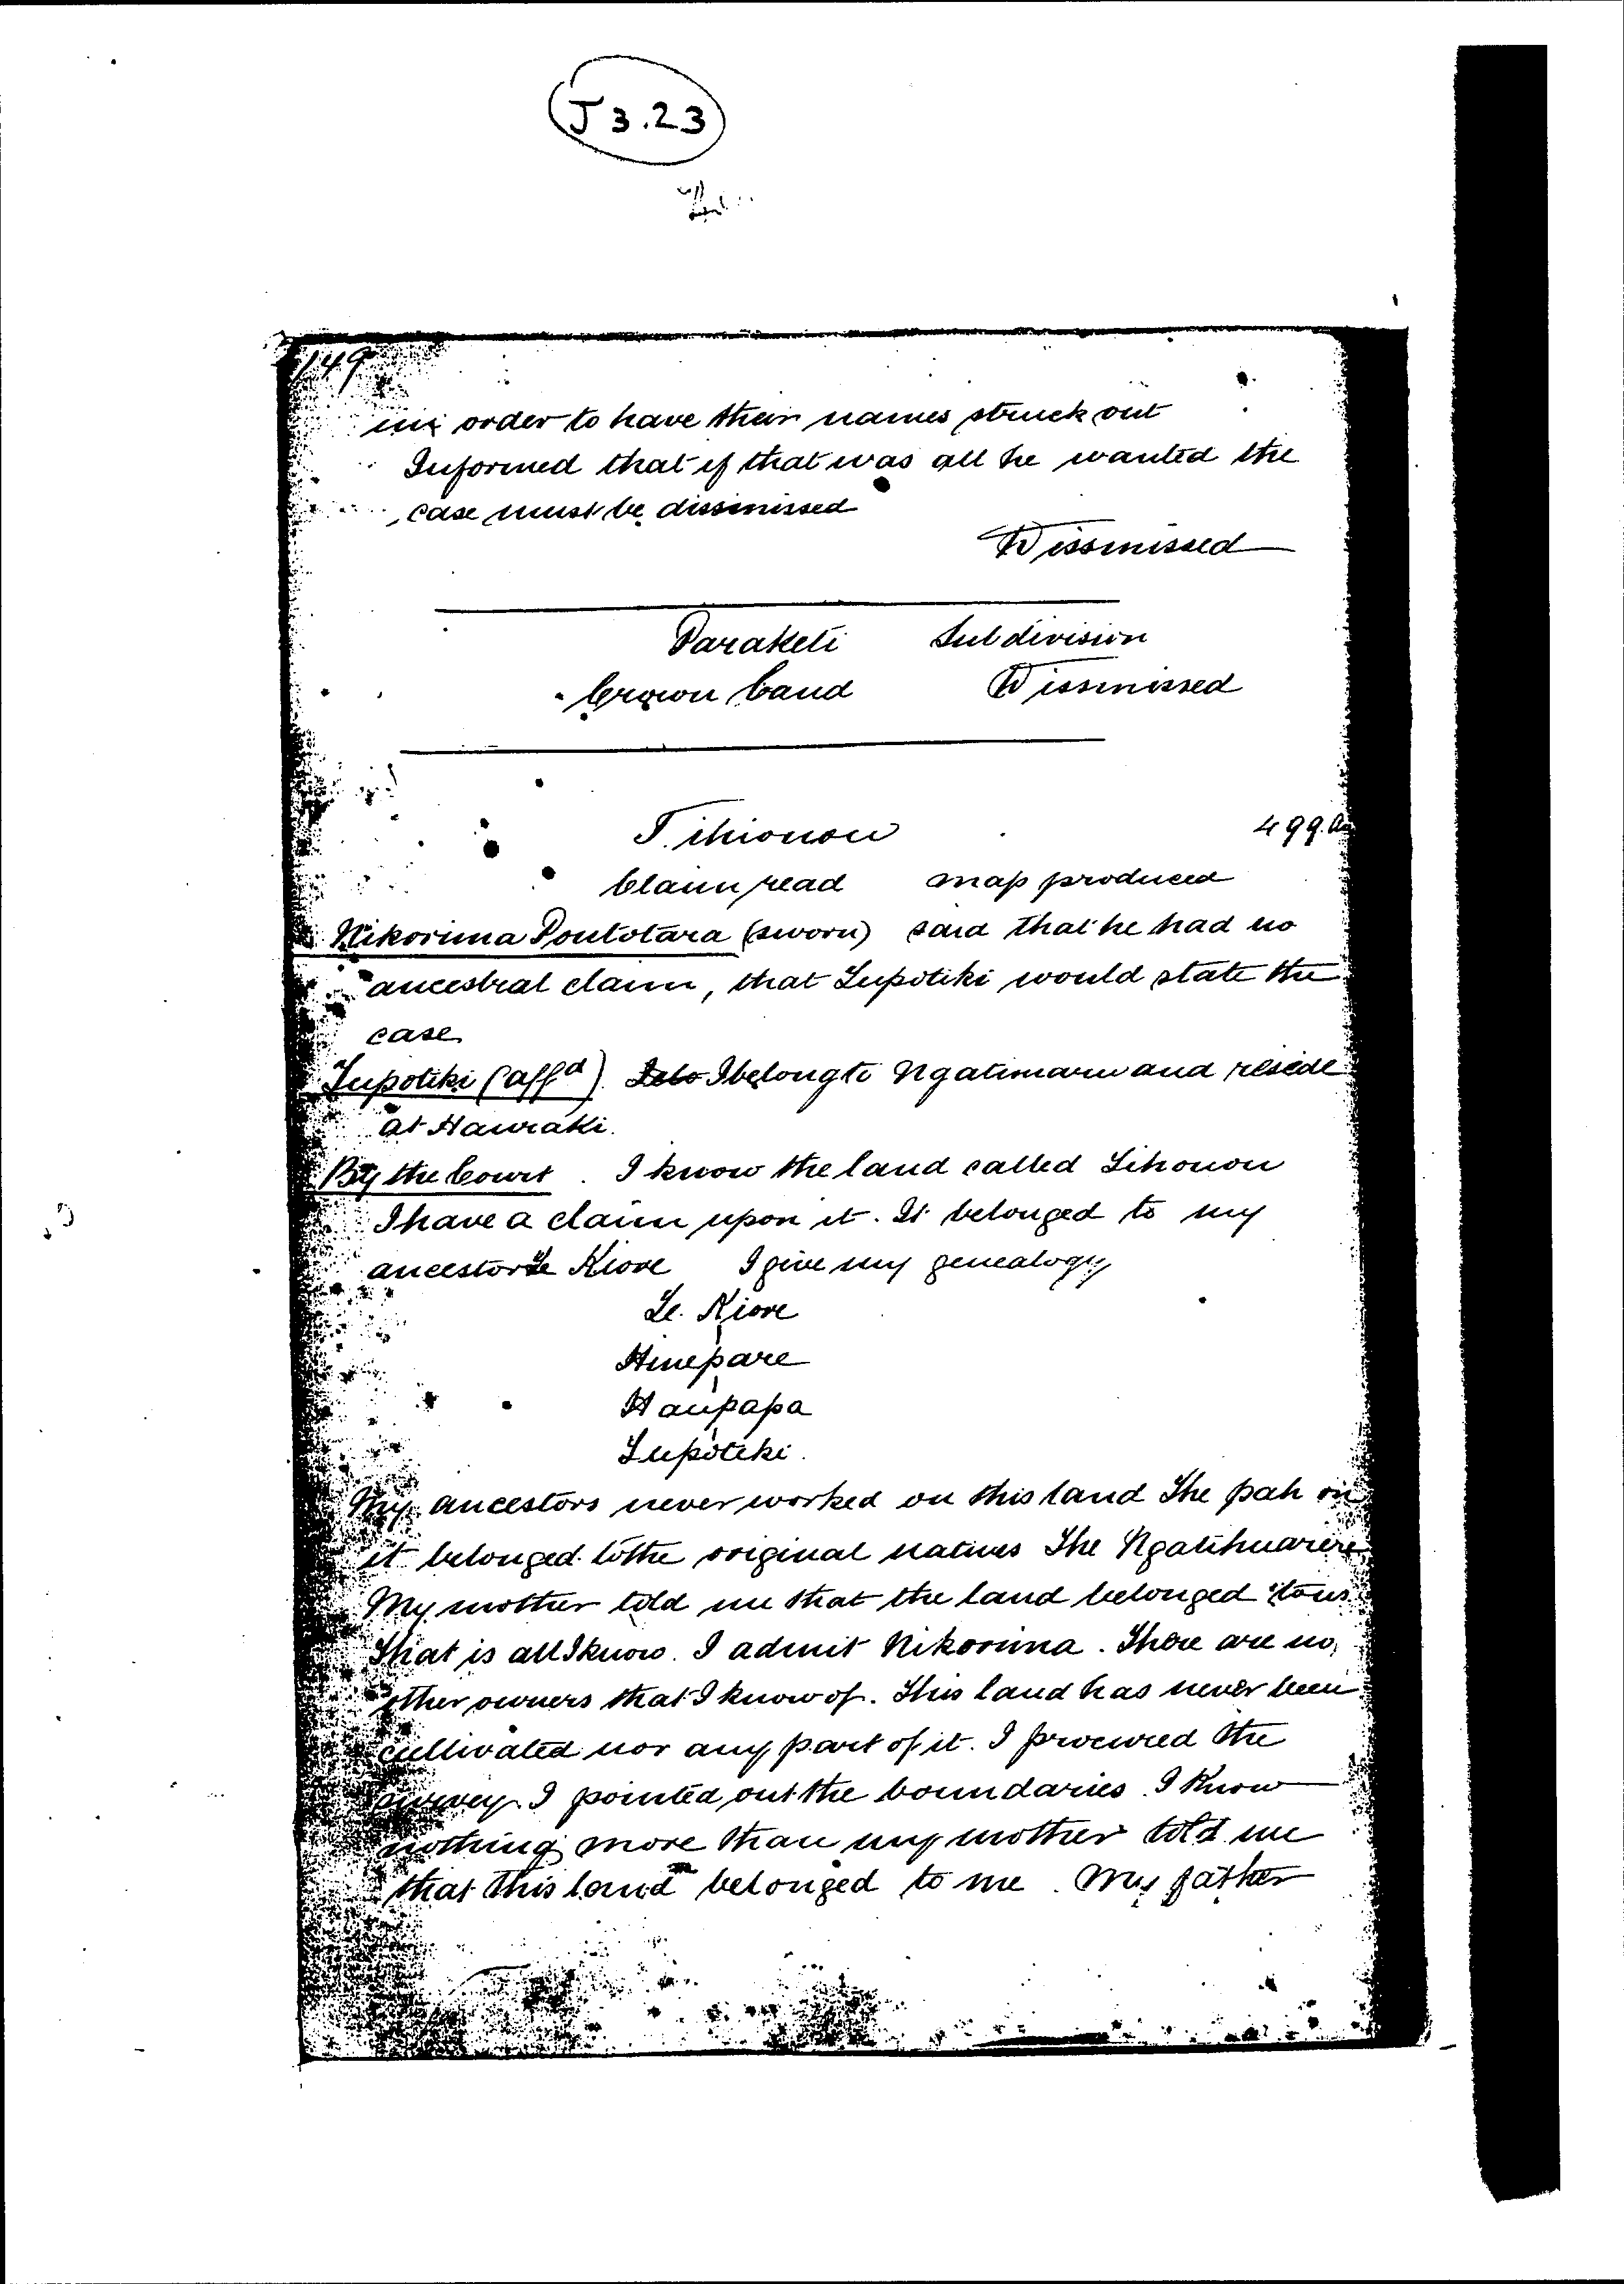 J 3.23
149
in order to have their names struck out
Informed that if that was all he wanted the
case must be dissmissed
Dissmissed
Paraketi Subdivision
Crown Land Dissmissed
Tihionou 499.a
Claim read map produced
Nikorima Poutotara (sworn) said that he had no
ancestral claim, that Tupotiki would state the
case
Tupotiki (aff d). I belong to Ngatimaru and reside
at Hauraki.
By the Court. I know the land called Tihonou
I have a claim upon it. It belonged to my
ancestor Te Kiore I give my genealogy
Te. Kiore
Hinepare
Haupapa
Tupotiki.
My ancestors never worked on this land The pah on
it belonged to the original natives The Ngatihuarere
My mother told me that the land belonged to us.
That is all I know. I admit Nikorima. There are no
other owners that I know of. This land has never been
cultivated nor any part of it. I procured the
survey. I pointed out the boundaries. I know
nothing more than my mother told me
that this land belonged to me. My father